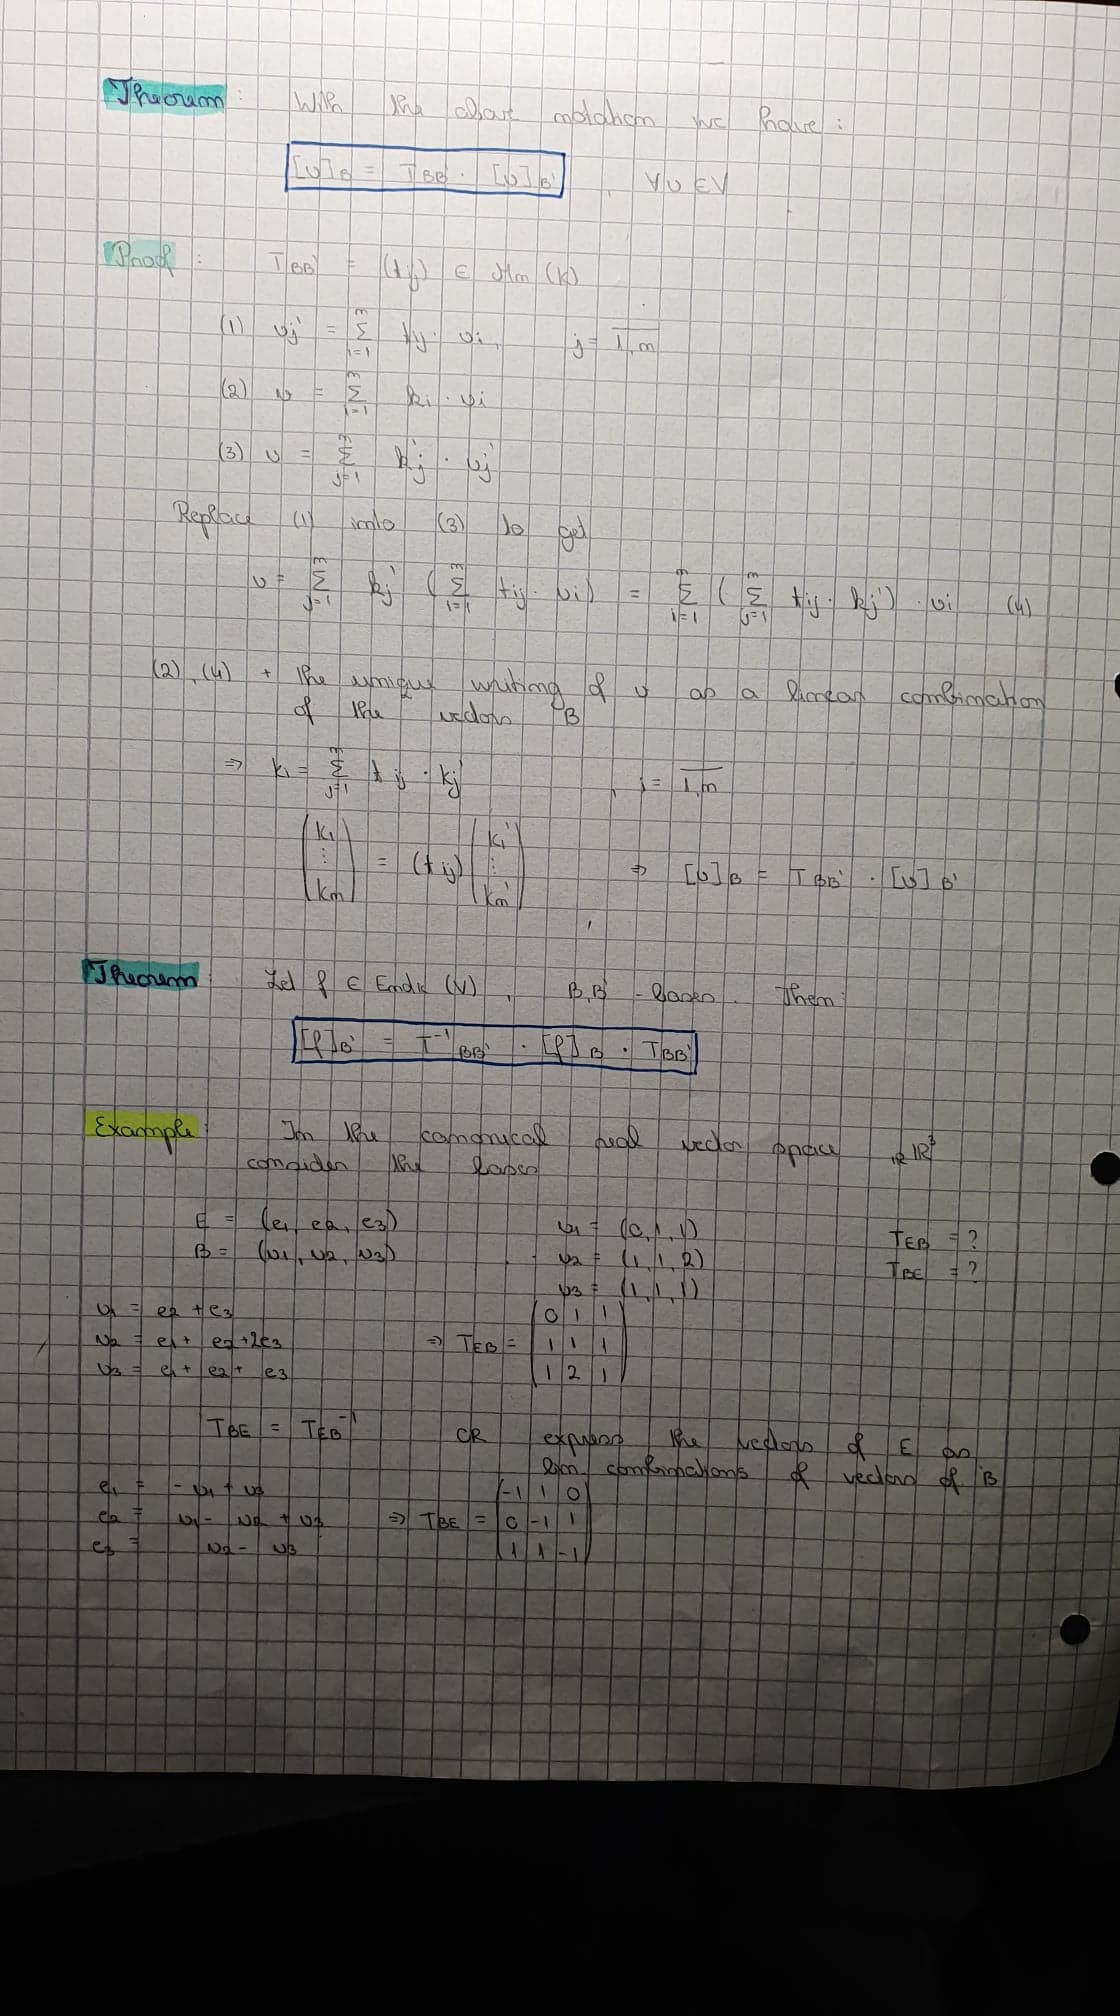 Theorem: With the above notation we have:
[v]B = TBB' · [v]B' , ∀v∈V
Proof: TBB' = (tij) ∈ Mn (K)
(1) vj' = Σ_{i=1}^{n} tij · vi, j = 1,n
(2) v = Σ_{i=1}^{n} ki · vi
(3) v = Σ_{j=1}^{n} kj' · vj'
Replace (1) into (3) to get
v = Σ_{j=1}^{n} kj' (Σ_{i=1}^{n} tij · vi) = Σ_{i=1}^{n} (Σ_{j=1}^{n} tij · kj') · vi (4)
(2), (4) + the unique writing of v as a linear combination
of the vectors B
⇒ ki = Σ_{j=1}^{n} tij · kj' , i = 1,n
(k1 ⋮ kn) = (tij) (k1' ⋮ kn') ⇒ [v]B = TBB' · [v]B'
Theorem: Let f ∈ EndK (V), B, B' - bases. Then:
[f]B' = T⁻¹BB' · [f]B · TBB'
Example: In the canonical real vector space ℝℝ³
consider the bases
E = (e1, e2, e3) v1 = (0,1,1) TEB = ?
B = (v1, v2, v3) v2 = (1,1,2) TBE = ?
v3 = (1,1,1)
v1 = e2 + e3
v2 = e1 + e2 + 2e3 ⇒ TEB = (0 1 1
1 1 1
v3 = e1 + e2 + e3 1 2 1)
TBE = TEB⁻¹ OR express the vectors of E as
lin. combinations of vectors of B
e1 = - v1 + v3 (-1 1 0
e2 = v1 - v2 + v3 ⇒ TBE = 0 -1 1
e3 = v2 - v3 1 1 -1)